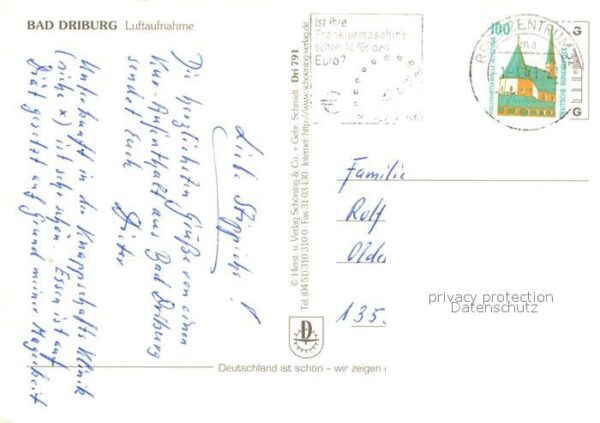 BAD DRIBURG Luftaufnahme
Liebe Stoppichs!
Die herzlichsten Grüße von einem
Kur-Aufenthalt aus Bad Driburg
sendet Euch
Dieter
Unterkunft in der Knappschafts Klinik
(siehe x) ist sehr schön. Essen ist auf
Diät gesetzt auf Grund meiner
© Herst. u. Verlag Schöning & Co. + Gebr. Schmidt Dri 791
Tel. (04 51) 310 310 0 · Fax 31 03 130 · Internet: http://www.schoening-verlag.de
Ist Ihre
Frankiermaschine
schon fit für den
Euro?
100
DEUTSCHE BUNDESPOST
G
G
Familie
Rolf
135.
privacy protection
Datenschutz
D
Deutschland ist schön – wir zeigen